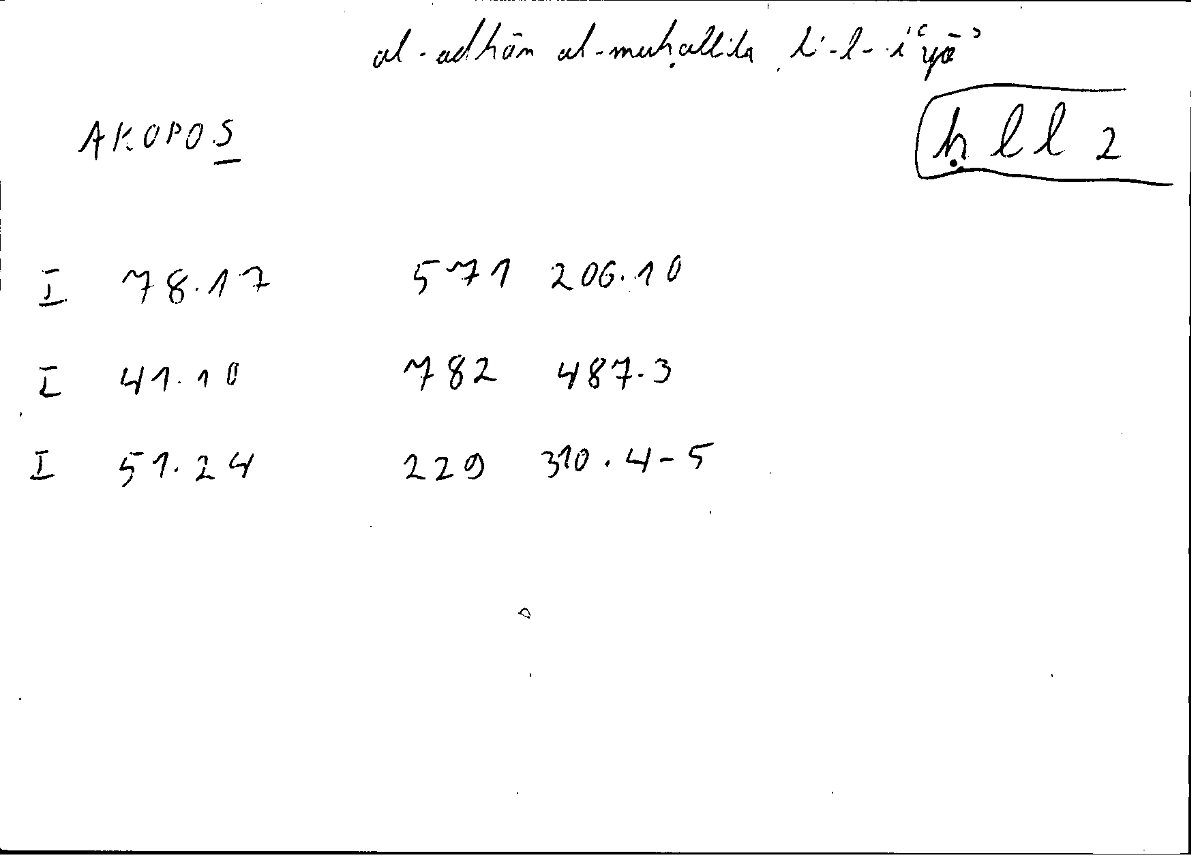 al-adhān al-muḥallila li-l-iʿyāʾ
AKOPOS
ḥ l l 2
I 78.17 571 206.10
I 41.10 782 487.3
I 51.24 229 310.4-5